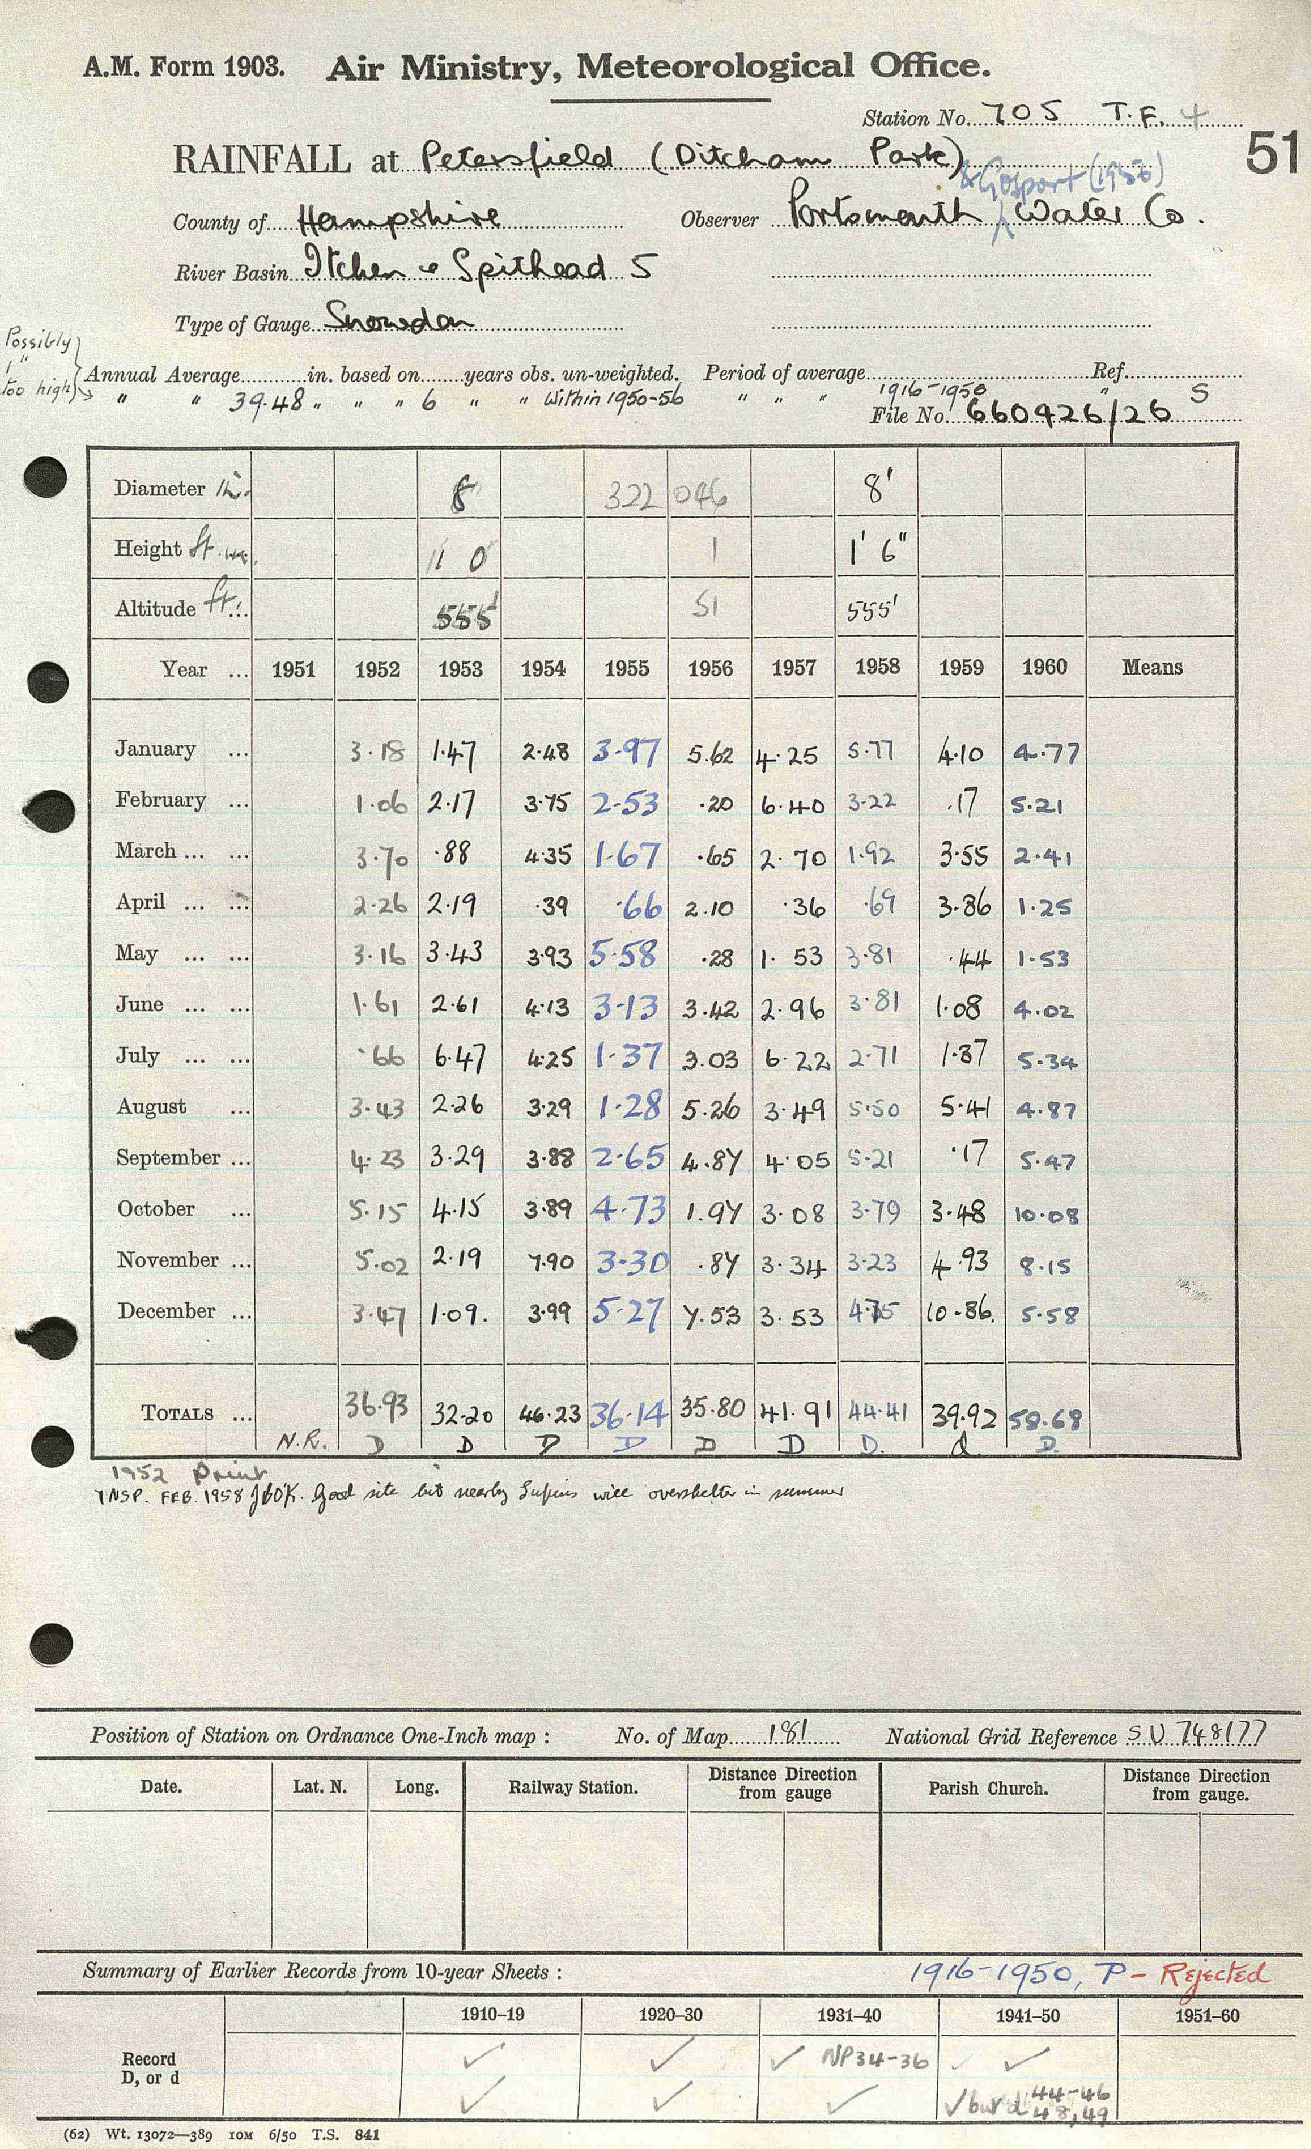 A.M. Form 1903. Air Ministry, Meteorological Office.
Station No. 705 T.F. 4
51
RAINFALL at Petersfield (Ditcham Park)
& Gosport (1956)
County of Hampshire Observer Portsmouth Water Co.
River Basin Itchen & Spithead 5
Type of Gauge Snowdon
Possibly 1" too high
Annual Average in. based on years obs. un-weighted. Period of average Ref.
" " 39.48 " " " 6 " " Within 1950-56 " " " 1916-1950 " S
File No. 660426/26
Diameter in. 8 322 046 8'
Height ft. ins. 1 0 1 1' 6"
Altitude ft. 555' 51 555'
Year ... 1951 1952 1953 1954 1955 1956 1957 1958 1959 1960 Means
January ... 3.18 1.47 2.48 3.97 5.62 4.25 5.77 4.10 4.77
February ... 1.06 2.17 3.75 2.53 .20 6.40 3.22 .17 5.21
March ... ... 3.70 .88 4.35 1.67 .65 2.70 1.92 3.55 2.41
April ... ... 2.26 2.19 .39 .66 2.10 .36 .69 3.86 1.25
May ... ... 3.16 3.43 3.93 5.58 .28 1.53 3.81 .44 1.53
June ... ... 1.61 2.61 4.13 3.13 3.42 2.96 3.81 1.08 4.02
July ... ... .66 6.47 4.25 1.37 3.03 6.22 2.71 1.87 5.34
August ... 3.43 2.26 3.29 1.28 5.26 3.49 5.50 5.41 4.87
September ... 4.23 3.29 3.88 2.65 4.87 4.05 5.21 .17 5.47
October ... 5.15 4.15 3.89 4.73 1.97 3.08 3.79 3.48 10.08
November ... 5.02 2.19 7.90 3.30 .87 3.34 3.23 4.93 8.15
December ... 3.47 1.09. 3.99 5.27 7.53 3.53 4.75 10.86. 5.58
TOTALS ... 36.93 32.20 46.23 36.14 35.80 41.91 44.41 39.92 58.68
N.R. D D D D D D D. d D.
1952 Print
INSP. FEB. 1958 OK. Good site but nearby lupins will overshelter in summer
Position of Station on Ordnance One-Inch map : No. of Map 181 National Grid Reference SU 748177
Date. Lat. N. Long. Railway Station. Distance from gauge Direction Parish Church. Distance from gauge. Direction
Summary of Earlier Records from 10-year Sheets : 1916-1950, P - Rejected
1910–19 1920–30 1931–40 1941–50 1951–60
Record D, or d ✓ ✓ ✓ NP34-36 ✓ ✓
✓ ✓ ✓ ✓ but d 44-46 48,49
(62) Wt. 13072—389 10M 6/50 T.S. 841